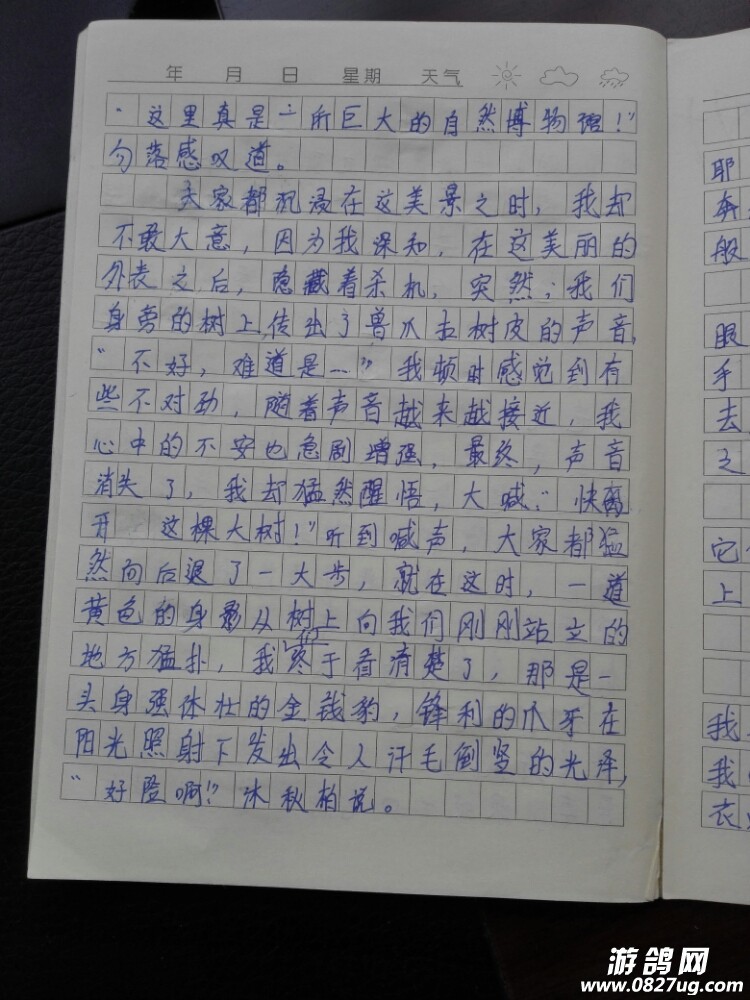 年 月 日 星期 天气
“这里真是一所巨大的自然博物馆！”
勿落感叹道。
大家都沉浸在这美景之时，我却
不敢大意，因为我深知，在这美丽的
外表之后，隐藏着杀机，突然；我们
身旁的树上传出了兽爪抓树皮的声音，
“不好，难道是……”我顿时感觉到有
些不对劲，随着声音越来越接近，我
心中的不安也急剧增强，最终，声音
消失了，我却猛然醒悟，大喊：“快离
开 这棵大树！”听到喊声，大家都猛
然向后退了一大步，就在这时，一道
黄色的身影从树上向我们刚刚站立的
地方猛扑，我终于看清楚了，那是一
头身强体壮的金钱豹，锋利的爪牙在
阳光照射下发出令人汗毛倒竖的光泽，
“好险啊！”沐秋柏说。
耶
奔
般
眼
手
去
之
它
上
我
我
衣
游鸽网
www.0827ug.com